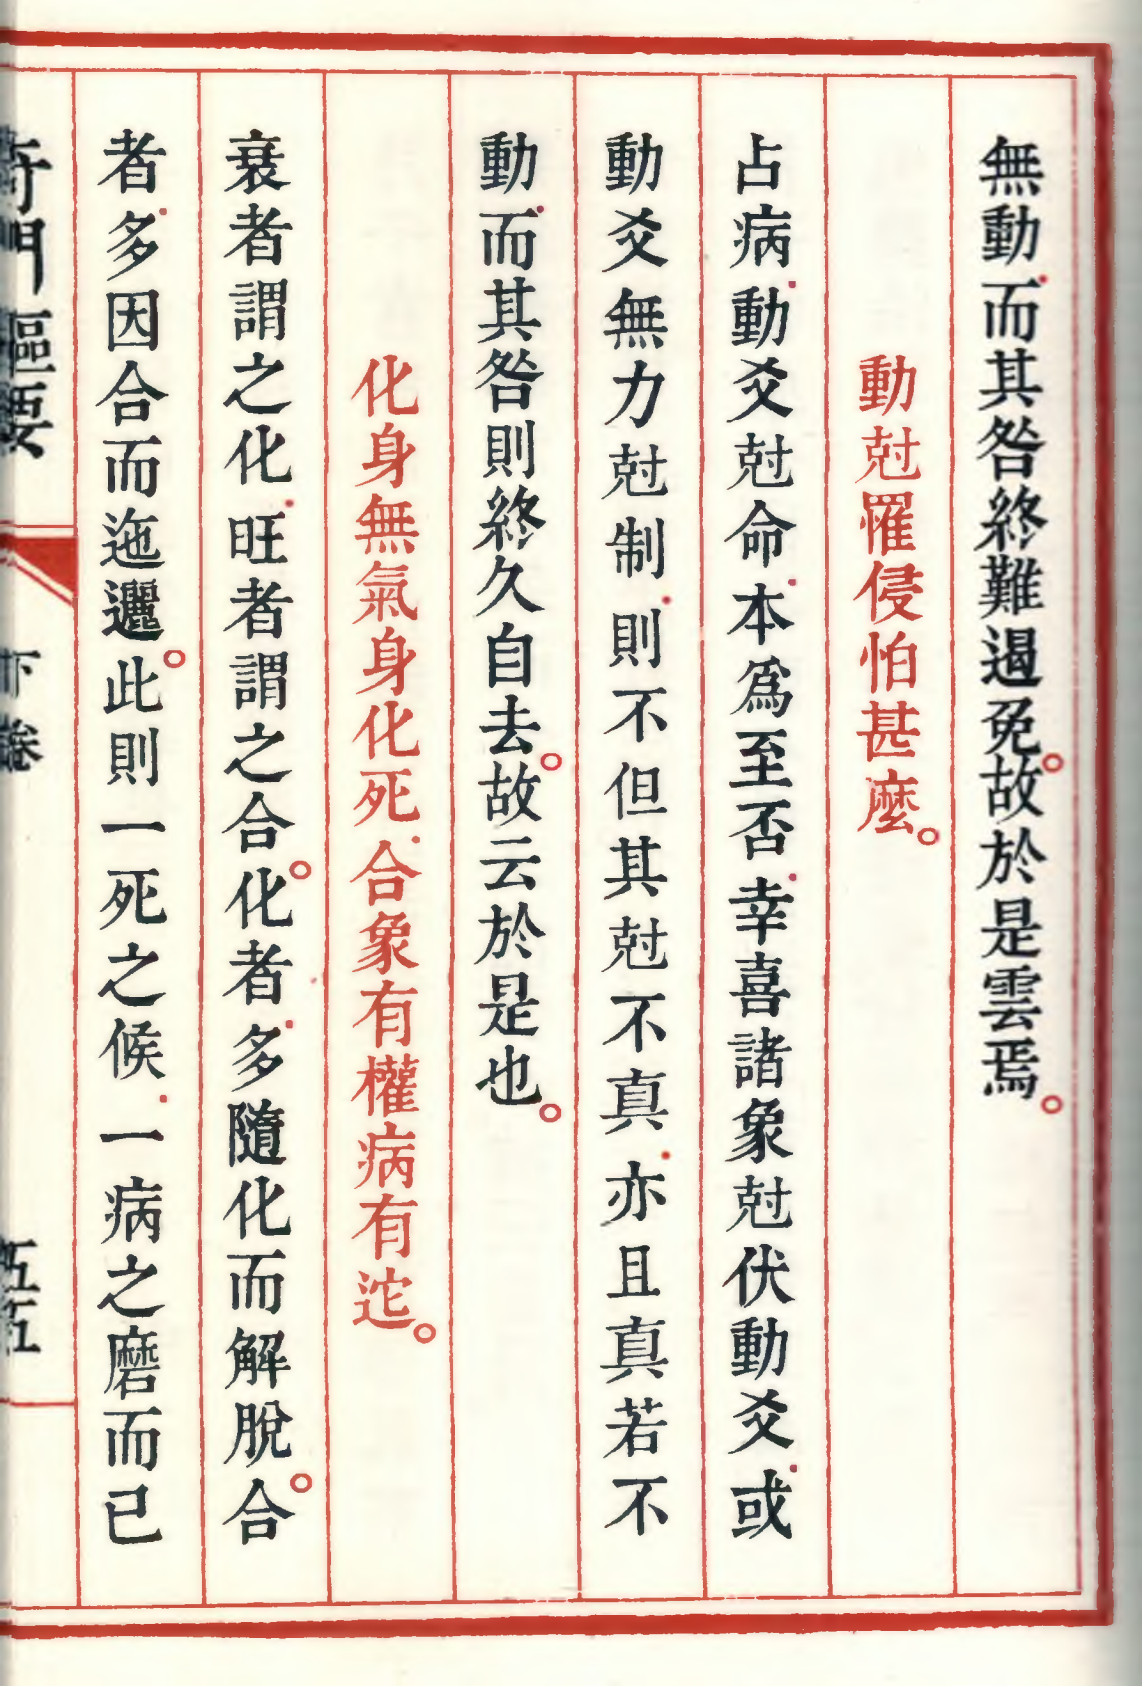 無動.而其咎終難遏免。故於是雲焉。
動尅罹侵怕甚麼。
占病.動爻尅命.本爲至否.幸喜諸象尅伏動爻.或
動爻無力尅制.則不但其尅不真.亦且真若不
動.而其咎則終久自去。故云於是也。
化身無氣身化死.合象有權病有沱。
衰者謂之化.旺者謂之合。化者.多隨化而解脫。合
者.多因合而迤邐。此則一死之候.一病之磨而已
奇門樞要
下卷
五五